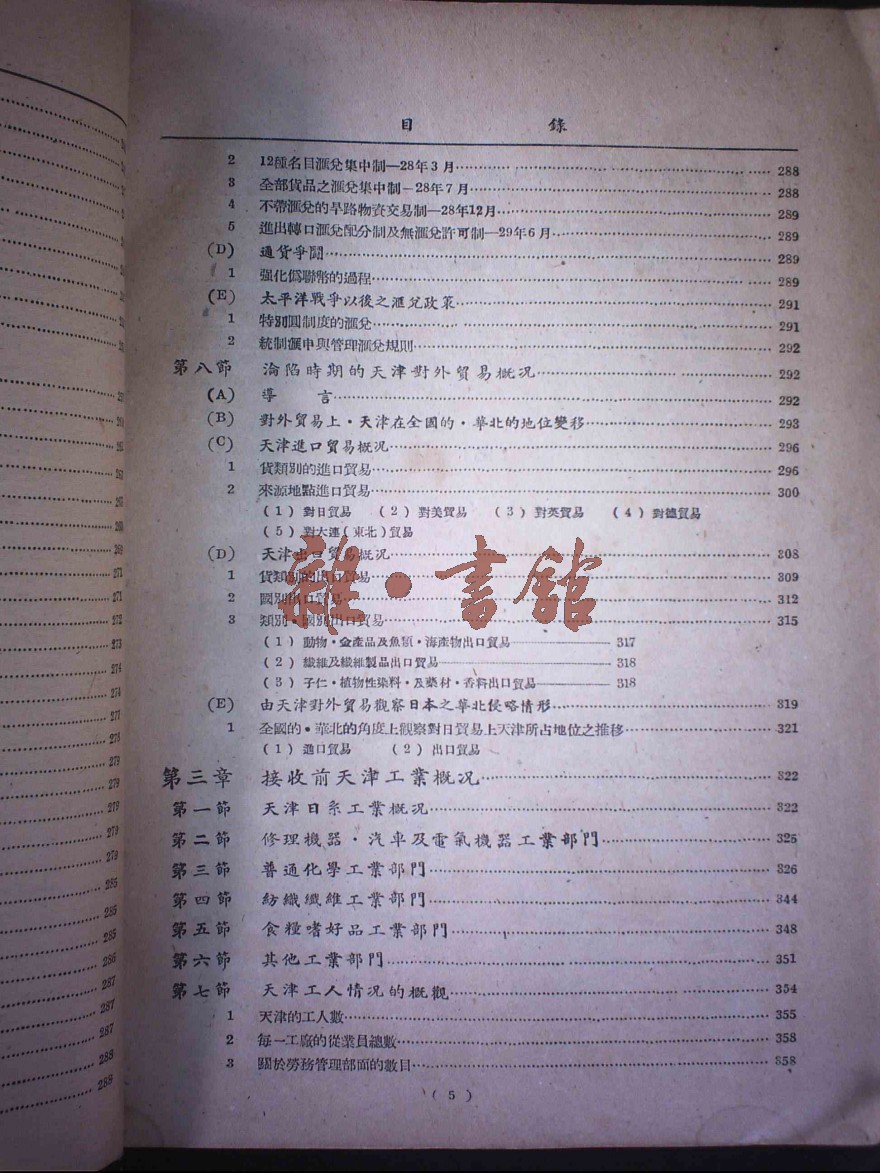 目 錄
2 12種名目滙兌集中制—28年3月 288
3 全部貨品之滙兌集中制—28年7月 288
4 不帶滙兌的旱路物資交易制—28年12月 289
5 進出轉口滙兌配分制及無滙兌許可制—29年6月 289
(D) 通貨爭鬪 289
1 强化僞聯幣的過程 289
(E) 太平洋戰爭以後之滙兌政策 291
1 特別圓制度的滙兌 291
2 統制滙申與管理滙兌規則 292
第八節 淪陷時期的天津對外貿易概况 292
(A) 導 言 292
(B) 對外貿易上・天津在全國的・華北的地位變移 293
(C) 天津進口貿易概况 296
1 貨類別的進口貿易 296
2 來源地點進口貿易 300
(1) 對日貿易 (2) 對美貿易 (3) 對英貿易 (4) 對德貿易
(5) 對大連(東北)貿易
(D) 天津出口貿易概况 308
1 貨類別的出口貿易 309
2 國別出口貿易 312
3 類別・國別出口貿易 315
(1) 動物・畜產品及魚類・海產物出口貿易 317
(2) 纖維及纖維製品出口貿易 318
(3) 子仁・植物性染料・及藥材・香料出口貿易 318
(E) 由天津對外貿易觀察日本之華北侵略情形 319
1 全國的・華北的角度上觀察對日貿易上天津所占地位之推移 321
(1) 進口貿易 (2) 出口貿易
第三章 接收前天津工業概况 322
第一節 天津日系工業概况 322
第二節 修理機器・汽車及電氣機器工業部門 325
第三節 普通化學工業部門 326
第四節 紡織纖維工業部門 344
第五節 食糧嗜好品工業部門 348
第六節 其他工業部門 351
第七節 天津工人情况的概觀 354
1 天津的工人數 355
2 每一工廠的從業員總數 358
3 關於勞務管理部面的數目 358
(5)
雜・書館